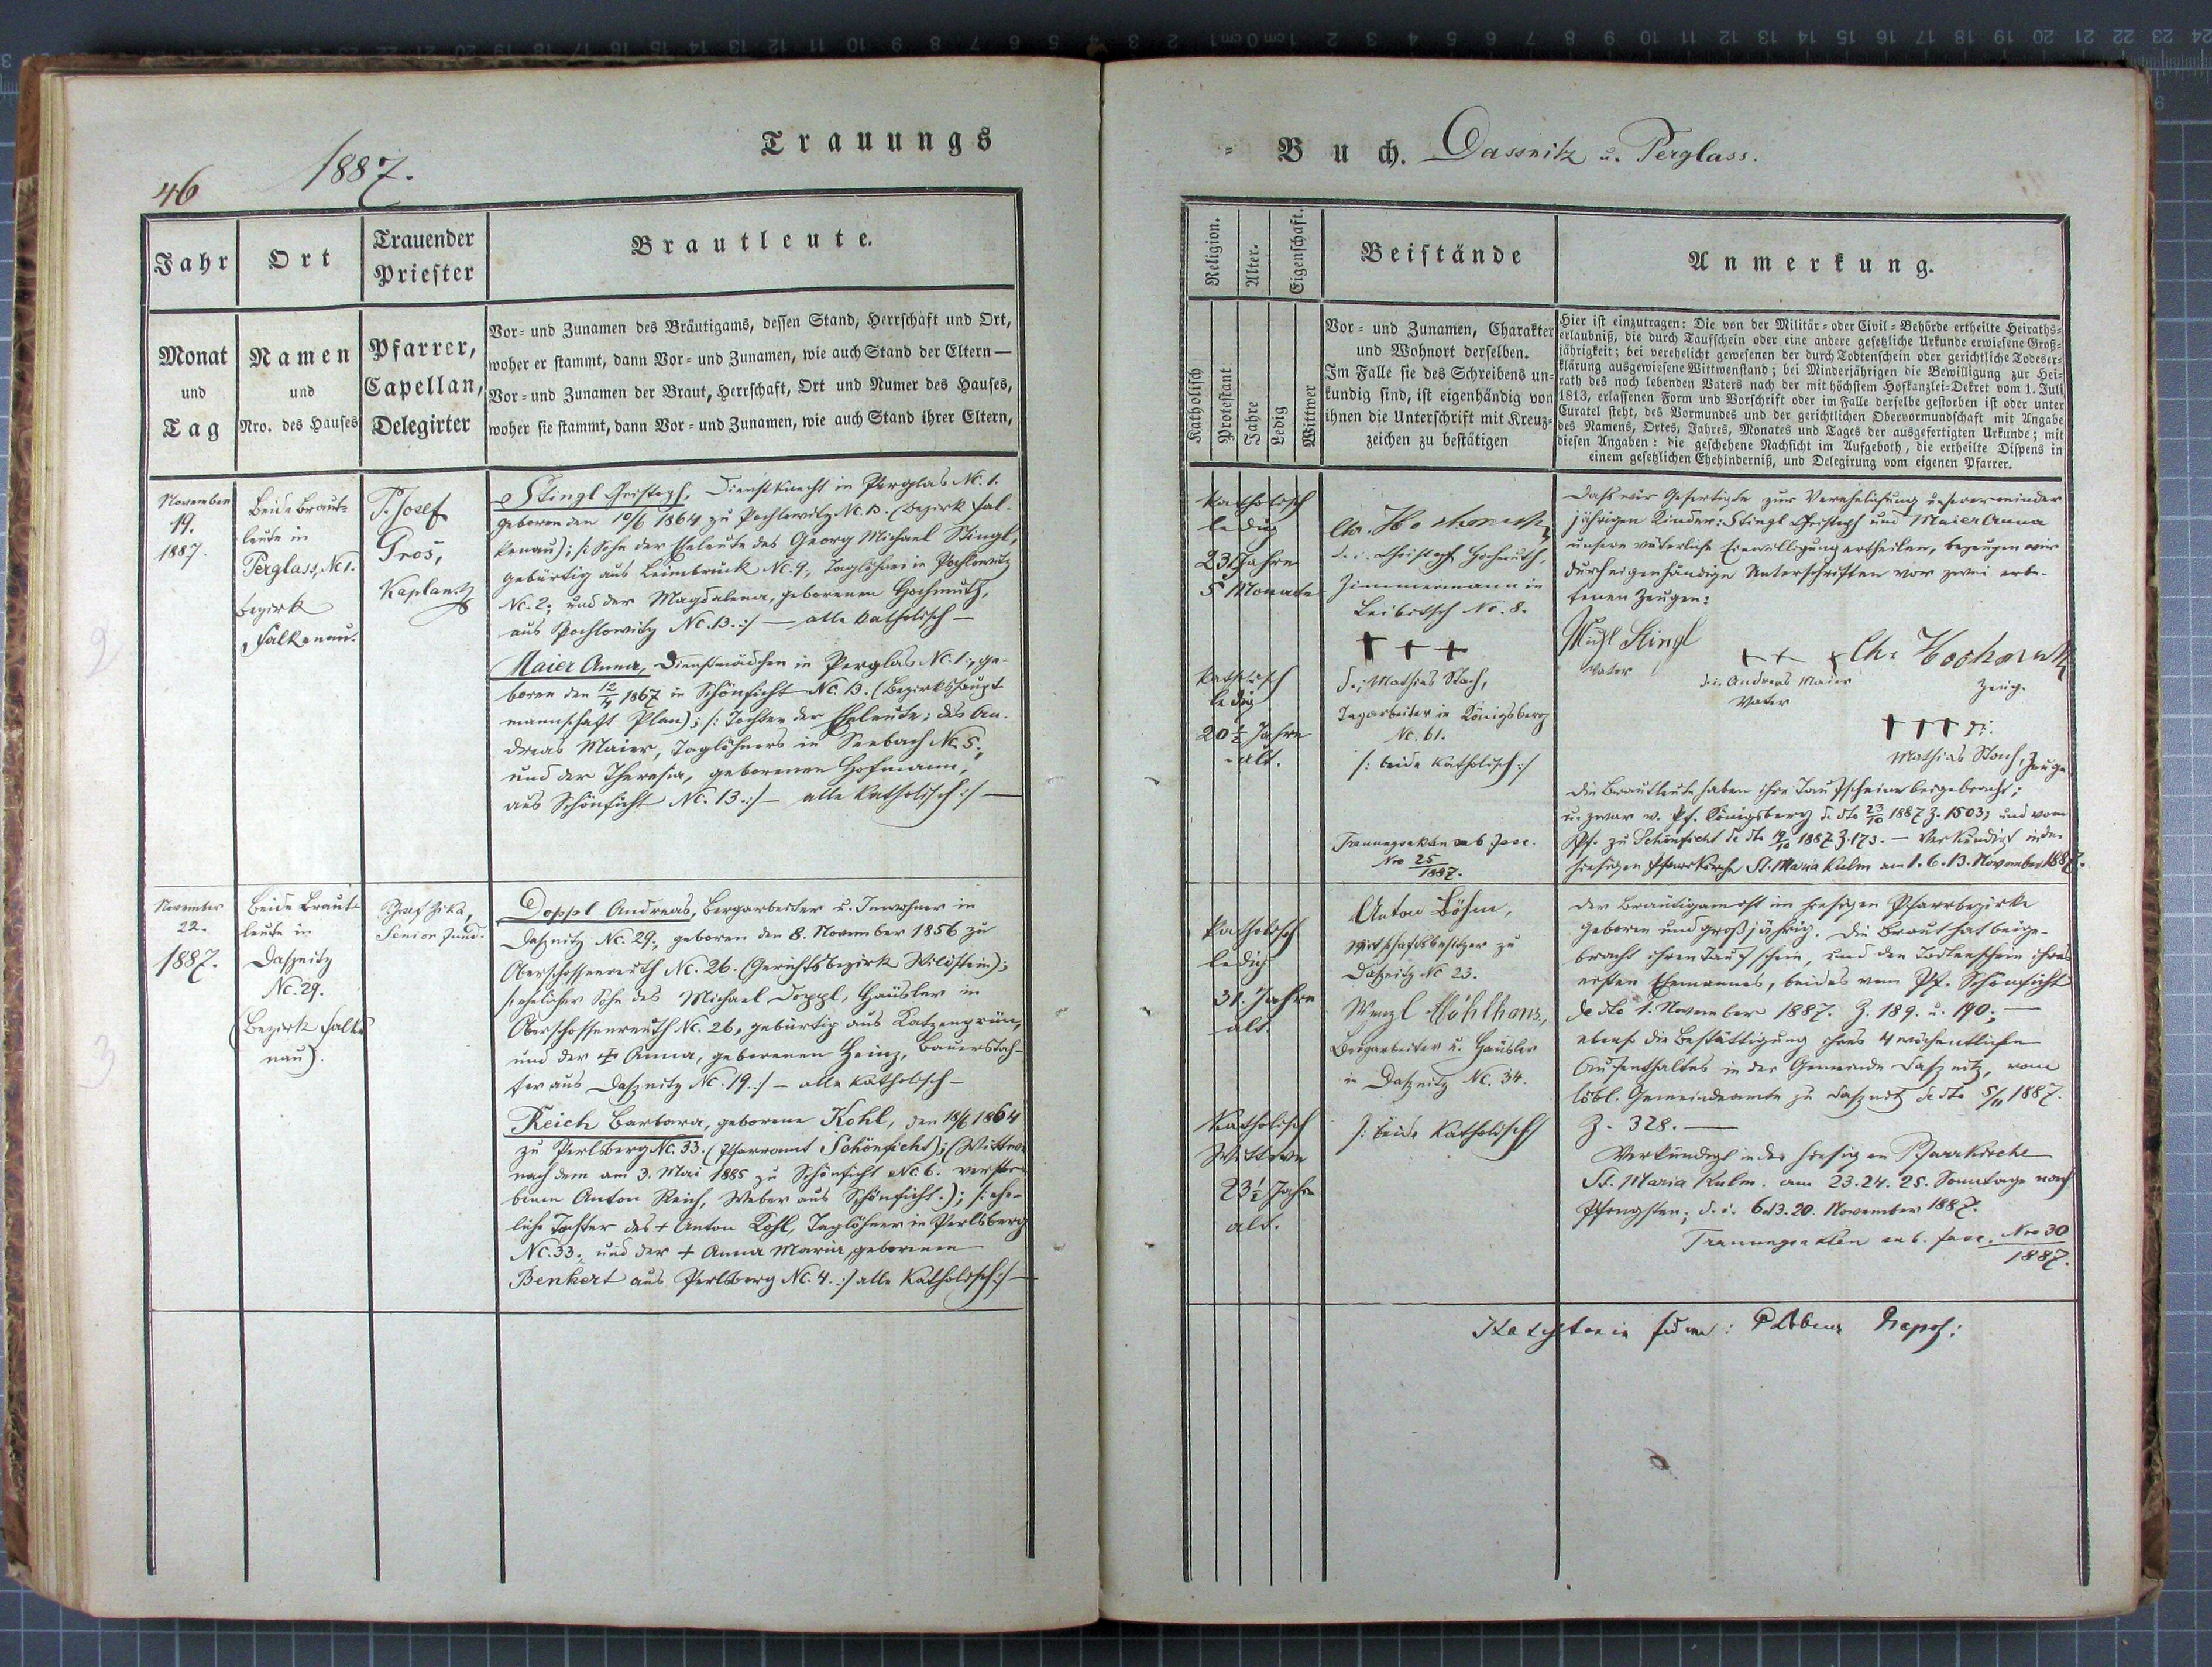 46
1887.
Trauungs
Jahr
Ort
Trauender
Priester
Brautleute.
Monat
und
Tag
Namen
und
Nro. des Hauses
Pfarrer,
Capellan,
Delegirter
Vor- und Zunamen des Bräutigams, dessen Stand, Herrschaft und Ort,
woher er stammt, dann Vor- und Zunamen, wie auch Stand der Eltern —
Vor- und Zunamen der Braut, Herrschaft, Ort und Numer des Hauses,
woher sie stammt, dann Vor- und Zunamen, wie auch Stand ihrer Eltern,
November
19.
1887.
Beide Braut=
leute in
Perglass, Nc 1.
Bezirk
Falkenau.
P. Josef
Gros,
Kaplan.
Stingl Christoph, Dienstknecht in Perglas Nc. 1.
geboren den 10/6 1864 zu Pochlowitz Nc 13. (Bezirk Fal-
kenau); /: Sohn der Eheleute des Georg Michael Stingl,
gebürtig aus Leimbruck Nc. 9, Taglöhner in Pochlowitz
Nc. 2; und der Magdalena, geborenen Hochmuth,
aus Pochlowitz Nc. 13. :/ — alle katholisch —
Maier Anna, Dienstmädchen in Perglas Nc. 1., ge-
boren den 12/4 1867 in Schönficht Nc. 13. (Bezirkshaupt-
mannschaft Plan); /: Tochter der Eheleute; des An-
dreas Maier, Taglöhners in Seebach Nc. 5.,
und der Theresia, geborenen Hofmann,
aus Schönficht Nc. 13 :/ — alle katholisch :/ —
November
22.
1887.
Beide Braut-
leute in
Daßnitz
Nc. 29.
(Bezirk Falke
nau).
Josef Zika,
Senior
Doppl Andreas, Bergarbeiter u. Inwohner in
Daßnitz Nc. 29., geboren den 8. November 1856 zu
Oberschossenreuth Nc. 26. (Gerichtsbezirk Wildstein);
/: ehelicher Sohn des Michael Doppl, Häusler in
Oberschossenreuth Nc. 26, gebürtig aus Katzengrün,
und der + Anna, geborenen Heinz, Bauerstoch-
ter aus Daßnitz Nc. 19. :/ — alle katholisch —
Reich Barbara, geborene Kohl, den 18/6 1864
zu Perlsberg Nc. 33. (Pfarramt Schönficht); (Wittwe
nach dem am 3. Mai 1885 zu Schönficht Nc. 6. verstor-
benen Anton Reich, Weber aus Schönficht.); /: ehe-
liche Tochter des + Anton Kohl, Taglöhner in Perlsberg
Nc. 33. und der + Anna Maria, geborenen
Benkert aus Perlsberg Nc. 4. :/ alle katholisch :/ —
= Buch. Dassnitz u. Perglass.
Religion.
Alter.
Eigenschaft.
Beistände
Anmerkung.
Katholisch
Protestant
Jahre
Ledig
Wittwer
Vor- und Zunamen, Charakter
und Wohnort derselben.
Im Falle sie des Schreibens un-
kundig sind, ist eigenhändig von
ihnen die Unterschrift mit Kreuz-
zeichen zu bestätigen
Hier ist einzutragen: Die von der Militär- oder Civil-Behörde ertheilte Heiraths-
erlaubniß, die durch Taufschein oder eine andere gesetzliche Urkunde erwiesene Groß-
jährigkeit; bei verehelicht gewesenen der durch Todtenschein oder gerichtliche Todeser-
klärung ausgewiesene Wittwenstand; bei Minderjährigen die Bewilligung zur Hei-
rath des noch lebenden Vaters nach der mit höchstem Hofkanzlei-Dekret vom 1. Juli
1813, erlassenen Form und Vorschrift oder im Falle derselbe gestorben ist oder unter
Curatel steht, des Vormundes und der gerichtlichen Obervormundschaft mit Angabe
des Namens, Ortes, Jahres, Monates und Tages der ausgefertigten Urkunde; mit
diesen Angaben: die geschehene Nachsicht im Aufgeboth, die ertheilte Dispens in
einem gesetzlichen Ehehinderniß, und Delegirung vom eigenen Pfarrer.
Katholisch
ledig
23 Jahre
5 Monate
Chr. Hochmuth
d. i. Christoph Hochmuth,
Zimmermann in
Leibitsch Nr. 8.
+ + +
d. i. Mathias Stach,
Tagarbeiter in Königsberg
Nc. 61.
/: beide katholisch :/
Katholisch
ledig
20 1/2 Jahre
alt.
Trauungsakten sub fasc.
Nro 25/1887.
Daß wir Gefertigte zur Verehelichung unserer minder
jährigen Kinder: Stingl Christoph und Maier Anna
unsere väterliche Einwilligung ertheilen, bezeugen wir
durch eigenhändige Unterschriften vor zwei erbe-
tenen Zeugen:
Michl Stingl
Vater
+ + +
d. i. Andreas Maier
Vater
Chr. Hochmuth
Zeuge
+++ d. i.
Mathias Stach, Zeuge
Die Brautleute haben ihre Taufscheine beigebracht;
u. zwar v. Pf. Königsberg de dto 23/10 1887 Z. 1503; und vom
Pf. zu Schönficht de dto 19/10 1887 Z. 173. — Verkündigt in der
hiesigen Pfarrkirche St. Maria Kulm am 1. 6. 13. November 1887.
Katholisch
ledig
31. Jahre
alt.
Anton Böhm,
Wirtschaftsbesitzer zu
Daßnitz Nc 23.
Wenzl Höhlhans,
Bergarbeiter u. Häusler
in Daßnitz Nc. 34.
/: beide katholisch
Katholisch
Wittwe
23 1/2 Jahre
alt.
Der Bräutigam ist im hiesigen Pfarrbezirke
geboren und großjährig. Die Braut hat beige-
bracht ihren Taufschein, und den Todtenschein ihres
ersten Ehemannes, beides vom Pf. Schönficht
de dto 1. November 1887. Z. 189. u. 190; —
ebenso die Bestättigung ihres 4 wöchentlichen
Aufenthaltes in der Gemeinde Daßnitz, vom
löbl. Gemeindeamte zu Daßnitz de dto 5/11 1887.
Z. 328. —
Verkündigt in der hiesigen Pfarrkirche
St. Maria Kulm. am 23. 24. 25. Sonntage nach
Pfingsten; d. i. 6. 13. 20. November 1887.
Trauungsakten sub. fasc. Nro 30
1887.